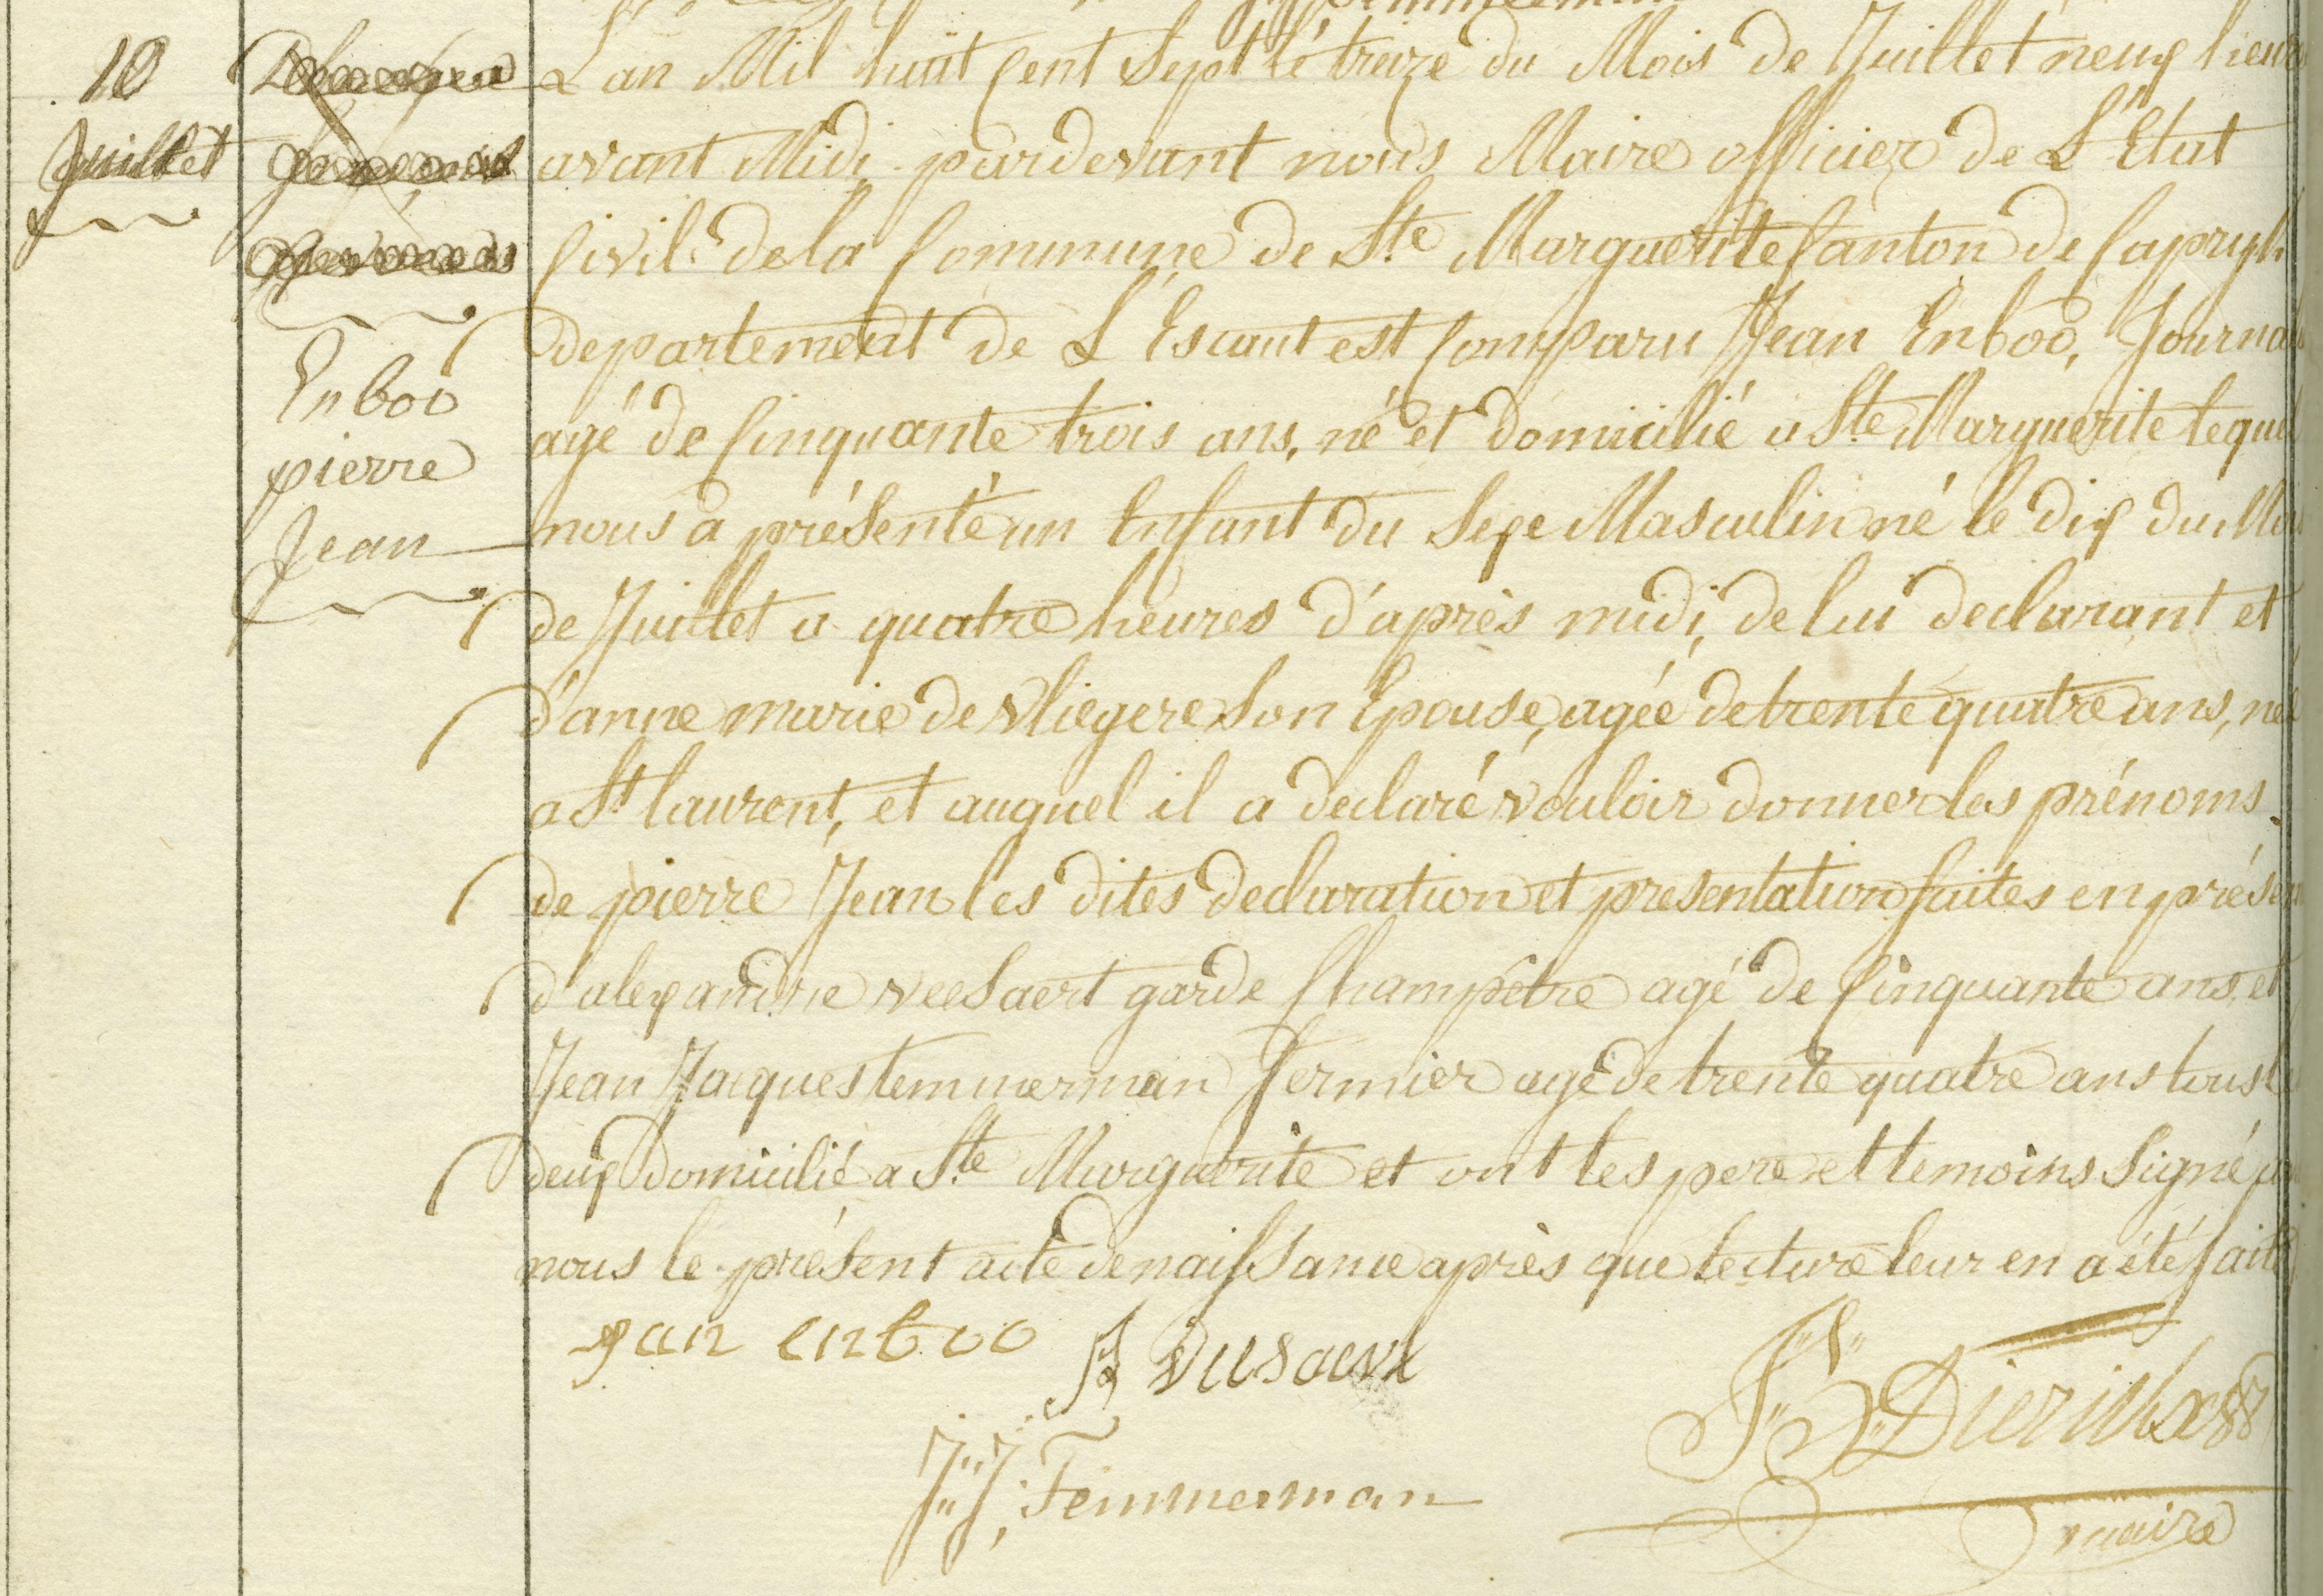 10
Juillet
Enboo
pierre
Jean
L'an Mil huit Cent Sept le treize du Mois de Juillet neuf heur
avant Midi pardevant nous Maire officier de L'Etat
Civil de la Commune de Ste Marguerite Canton de Capryk
departement de L'Escaut est Comparu Jean Enboo, Journa
agé de Cinquante trois ans, né et domicilié a Ste Marguerite lequel
nous a présenté un Enfant du Sexe Masculin né le dix du Moi
de Juillet a quatre heures d'après midi, de lui declarant et
d'anne marie de vliegere Son Epouse, agée de trente quatre ans, née
a St laurent, et auquel il a declaré vouloir donner les prénoms
de pierre Jean les dites declaration et presentation faites en présen
d'alexandre veesaert garde Champêtre agé de Cinquante ans, et
Jean Jacques temmerman Fermier agé de trente quatre ans tous l
deux domicilié a Ste Marguerite et ont les pere et temoins Signé
nous le présent acte de naissance après que lecture leur en a été faite
jan enboo
J: J: Temmerman
Dierickx
maire